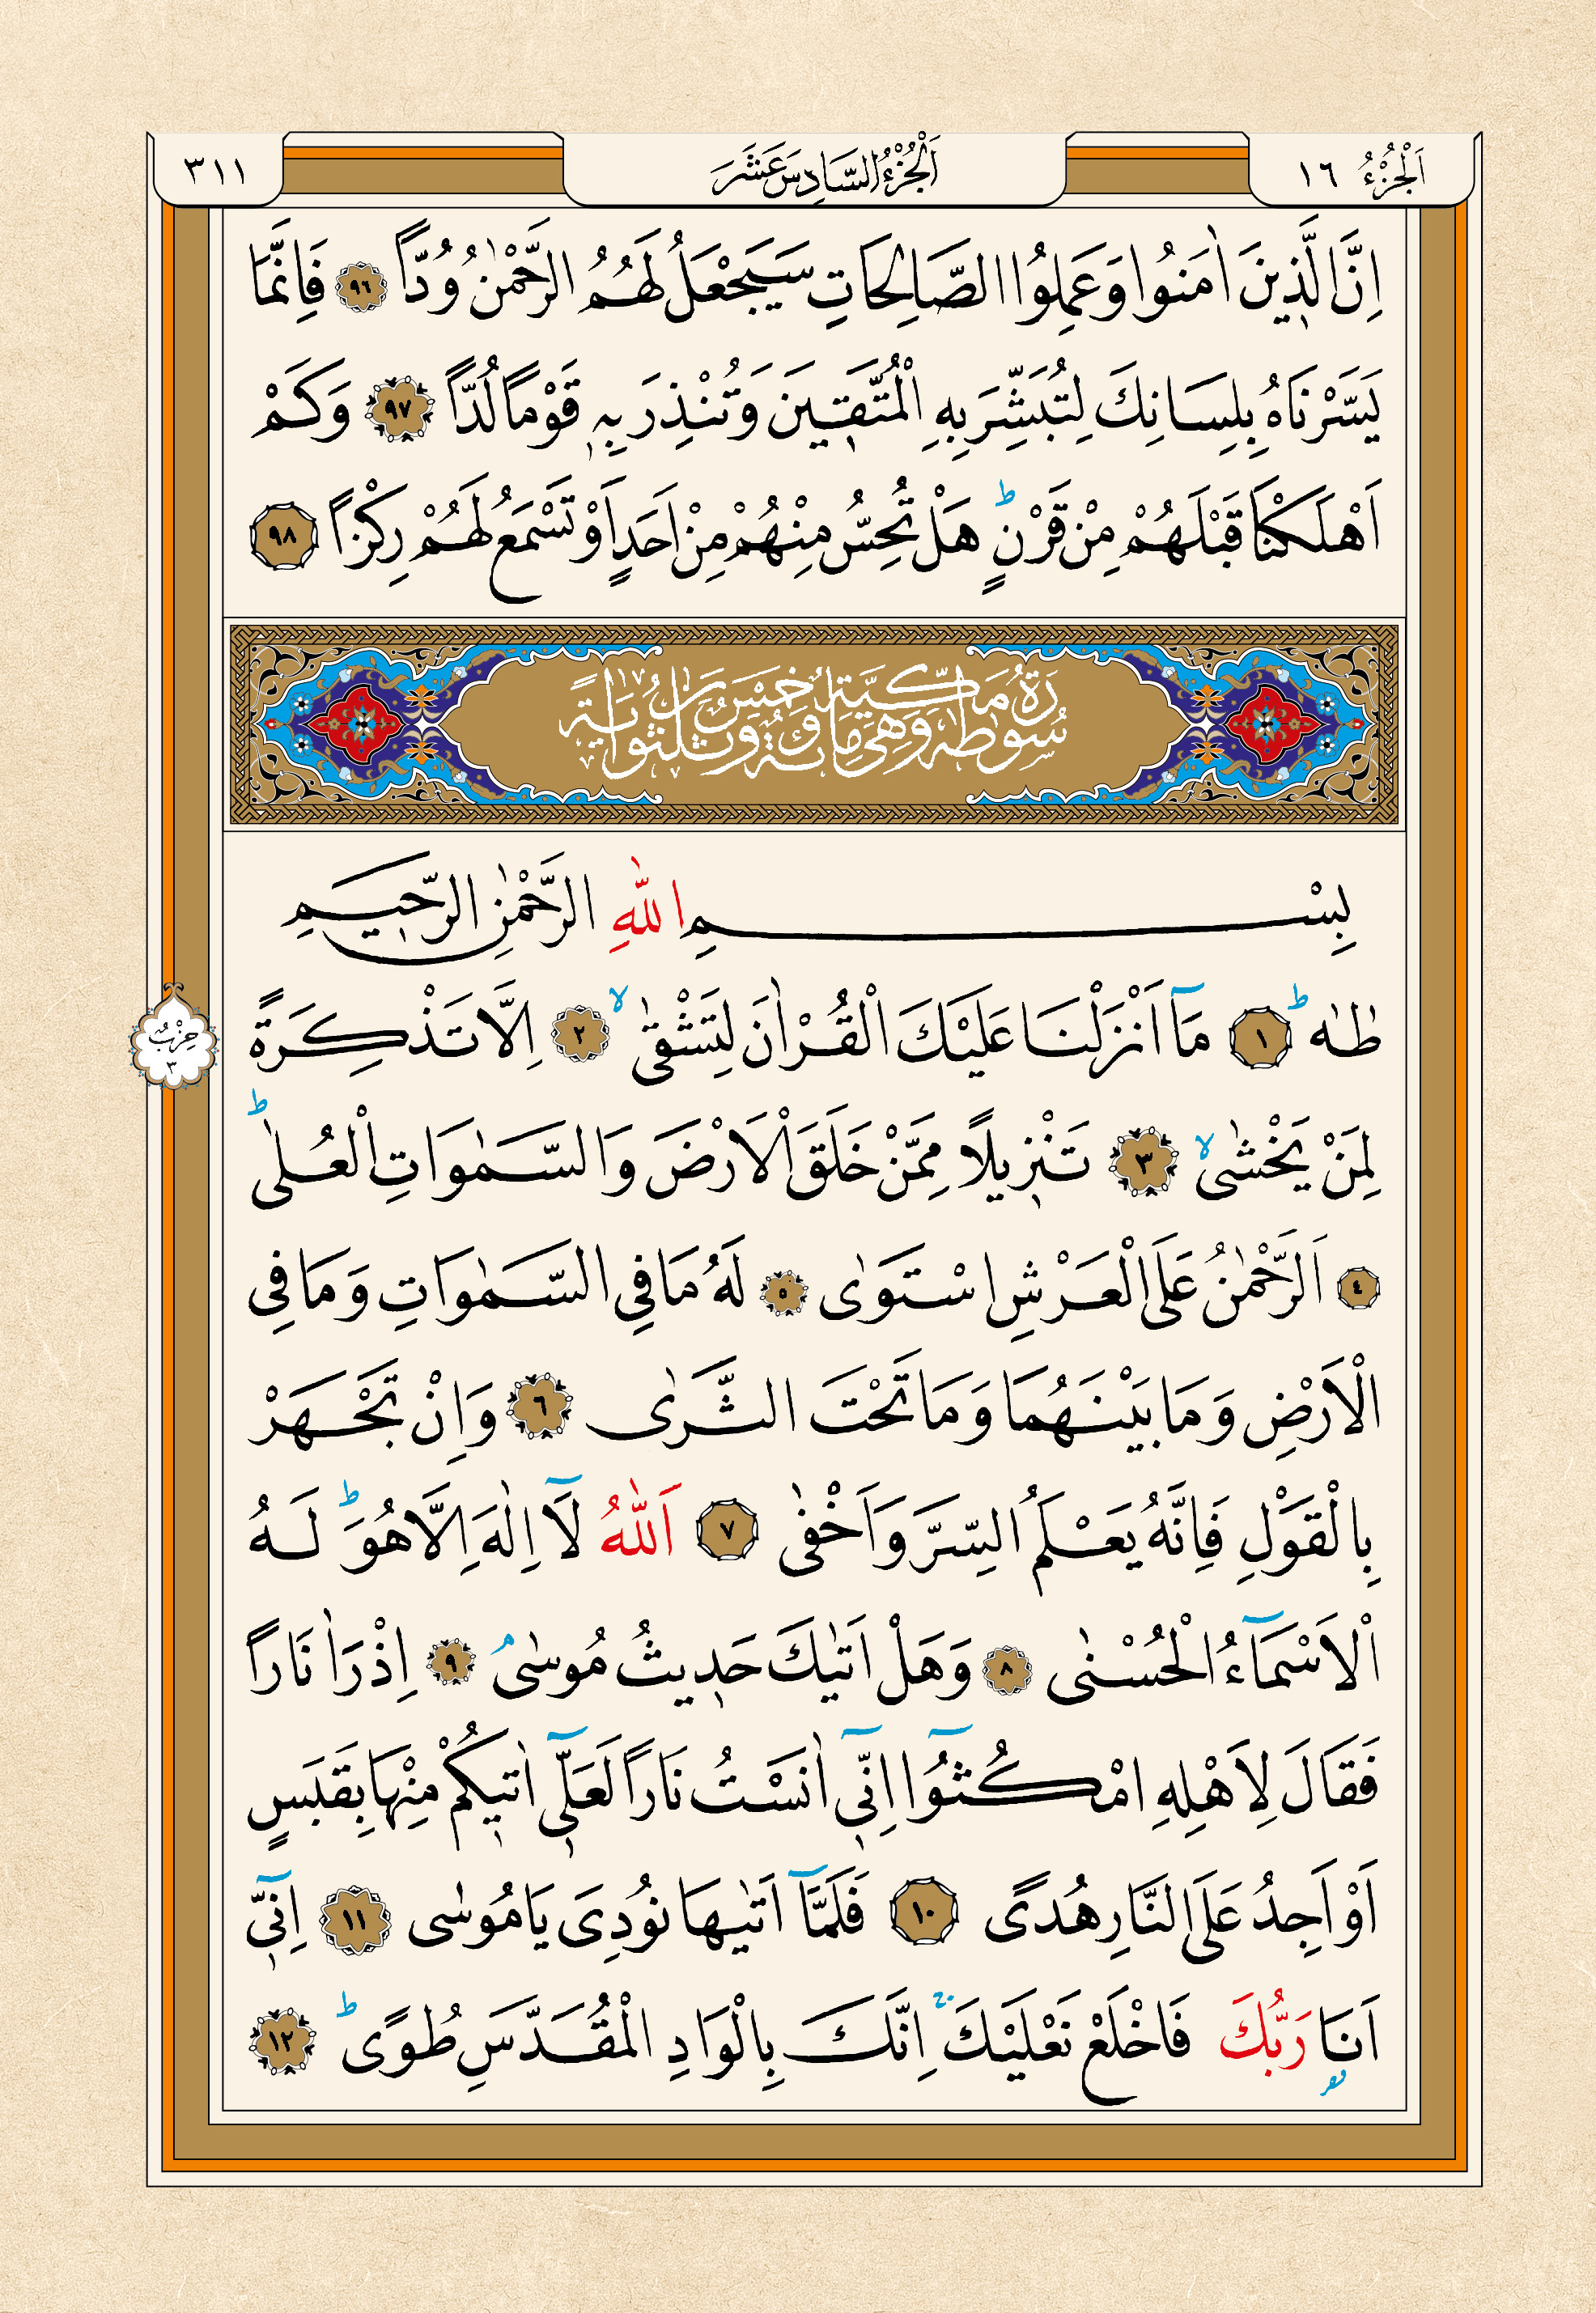 اَلْجُزْءُ ١٦
اَلْجُزْءُ السَّادِسَ عَشَرَ
٣١١
اِنَّ الَّذ۪ينَ اٰمَنُوا وَعَمِلُوا الصَّالِحَاتِ سَيَجْعَلُ لَهُمُ الرَّحْمٰنُ وُدًّا ٩٦ فَاِنَّمَا
يَسَّرْنَاهُ بِلِسَانِكَ لِتُبَشِّرَ بِهِ الْمُتَّق۪ينَ وَتُنْذِرَ بِه۪ قَوْمًا لُدًّا ٩٧ وَكَمْ
اَهْلَكْنَا قَبْلَهُمْ مِنْ قَرْنٍۜ هَلْ تُحِسُّ مِنْهُمْ مِنْ اَحَدٍ اَوْ تَسْمَعُ لَهُمْ رِكْزًا ٩٨
سُورَةُ طٰهٰ مَكِّيَّةٌ وَهِيَ مِائَةٌ وَخَمْسٌ وَثَلٰثُونَ اٰيَةً
بِسْمِ اللّٰهِ الرَّحْمٰنِ الرَّح۪يمِ
طٰهٰۜ ١ مَٓا اَنْزَلْنَا عَلَيْكَ الْقُرْاٰنَ لِتَشْقٰىۙ ٢ اِلَّا تَذْكِرَةً
حِزْبُ
٣
لِمَنْ يَخْشٰىۙ ٣ تَنْز۪يلًا مِمَّنْ خَلَقَ الْاَرْضَ وَالسَّمٰوَاتِ الْعُلٰىۜ
٤ اَلرَّحْمٰنُ عَلَى الْعَرْشِ اسْتَوٰى ٥ لَهُ مَا فِي السَّمٰوَاتِ وَمَا فِي
الْاَرْضِ وَمَا بَيْنَهُمَا وَمَا تَحْتَ الثَّرٰى ٦ وَاِنْ تَجْهَرْ
بِالْقَوْلِ فَاِنَّهُ يَعْلَمُ السِّرَّ وَاَخْفٰى ٧ اَللّٰهُ لَٓا اِلٰهَ اِلَّا هُوَۜ لَهُ
الْاَسْمَٓاءُ الْحُسْنٰى ٨ وَهَلْ اَتٰيكَ حَد۪يثُ مُوسٰىۢ ٩ اِذْ رَاٰ نَارًا
فَقَالَ لِاَهْلِهِ امْكُثُٓوا اِنّ۪ٓي اٰنَسْتُ نَارًا لَعَلّ۪ٓي اٰت۪يكُمْ مِنْهَا بِقَبَسٍ
اَوْ اَجِدُ عَلَى النَّارِ هُدًى ١٠ فَلَمَّٓا اَتٰيهَا نُودِيَ يَا مُوسٰى ١١ اِنّ۪ٓي
اَنَا۬ رَبُّكَ فَاخْلَعْ نَعْلَيْكَۚ اِنَّكَ بِالْوَادِ الْمُقَدَّسِ طُوًىۜ ١٢